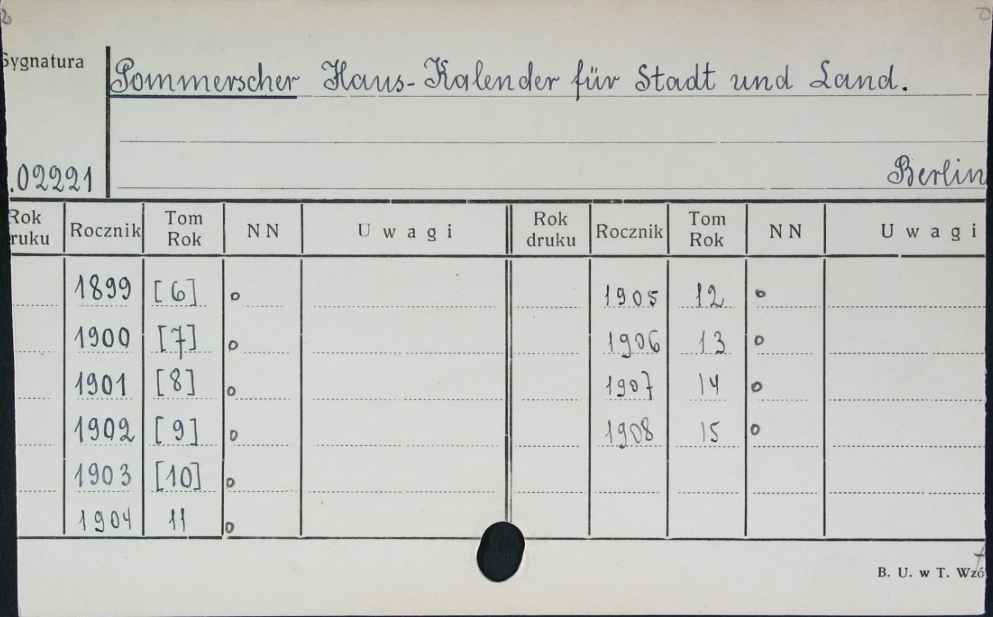 Sygnatura
Pommerscher Haus-Kalender für Stadt und Land.
.02221
Berlin
Rok druku Rocznik Tom Rok NN Uwagi Rok druku Rocznik Tom Rok NN Uwagi
1899 [6] o 1905 12 o
1900 [7] o 1906 13 o
1901 [8] o 1907 14 o
1902 [9] o 1908 15 o
1903 [10] o
1904 11 o
B. U. w T. Wzó